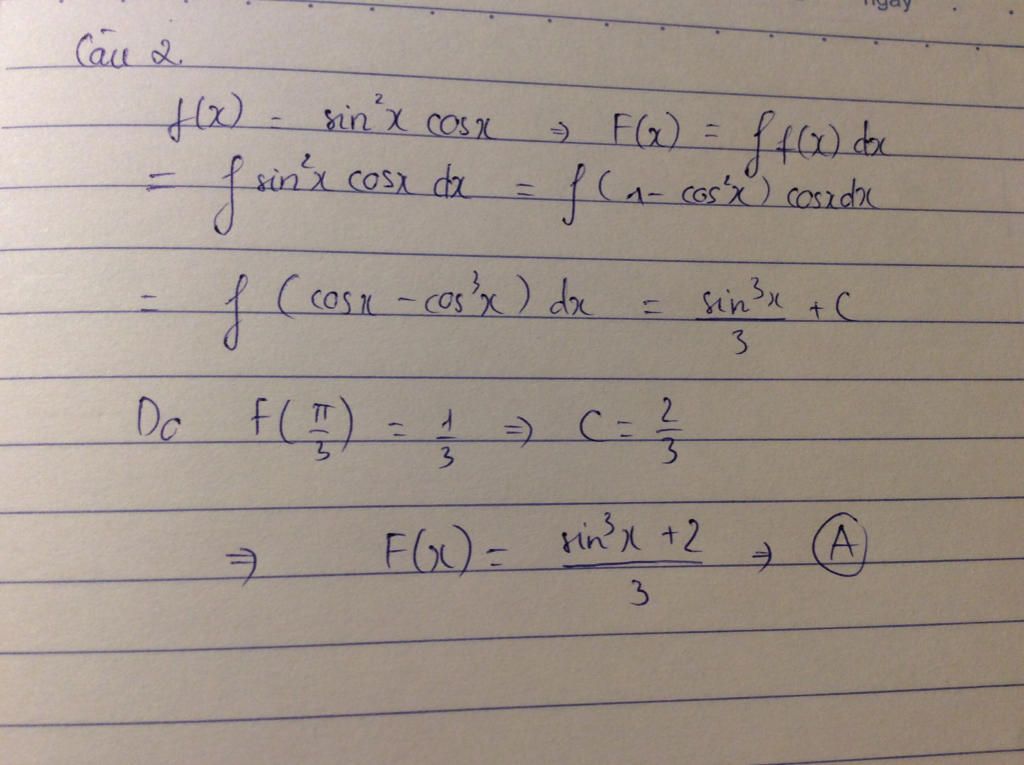 ngày
Câu 2.
f(x) = sin²x cosx ⇒ F(x) = ∫ f(x) dx
= ∫ sin²x cosx dx = ∫ (1 - cos²x) cosxdx
= ∫ (cosx - cos³x) dx = sin³x/3 + C
Do F(π/3) = 1/3 ⇒ C = 2/3
⇒ F(x) = (sin³x + 2)/3 ⇒ Ⓐ